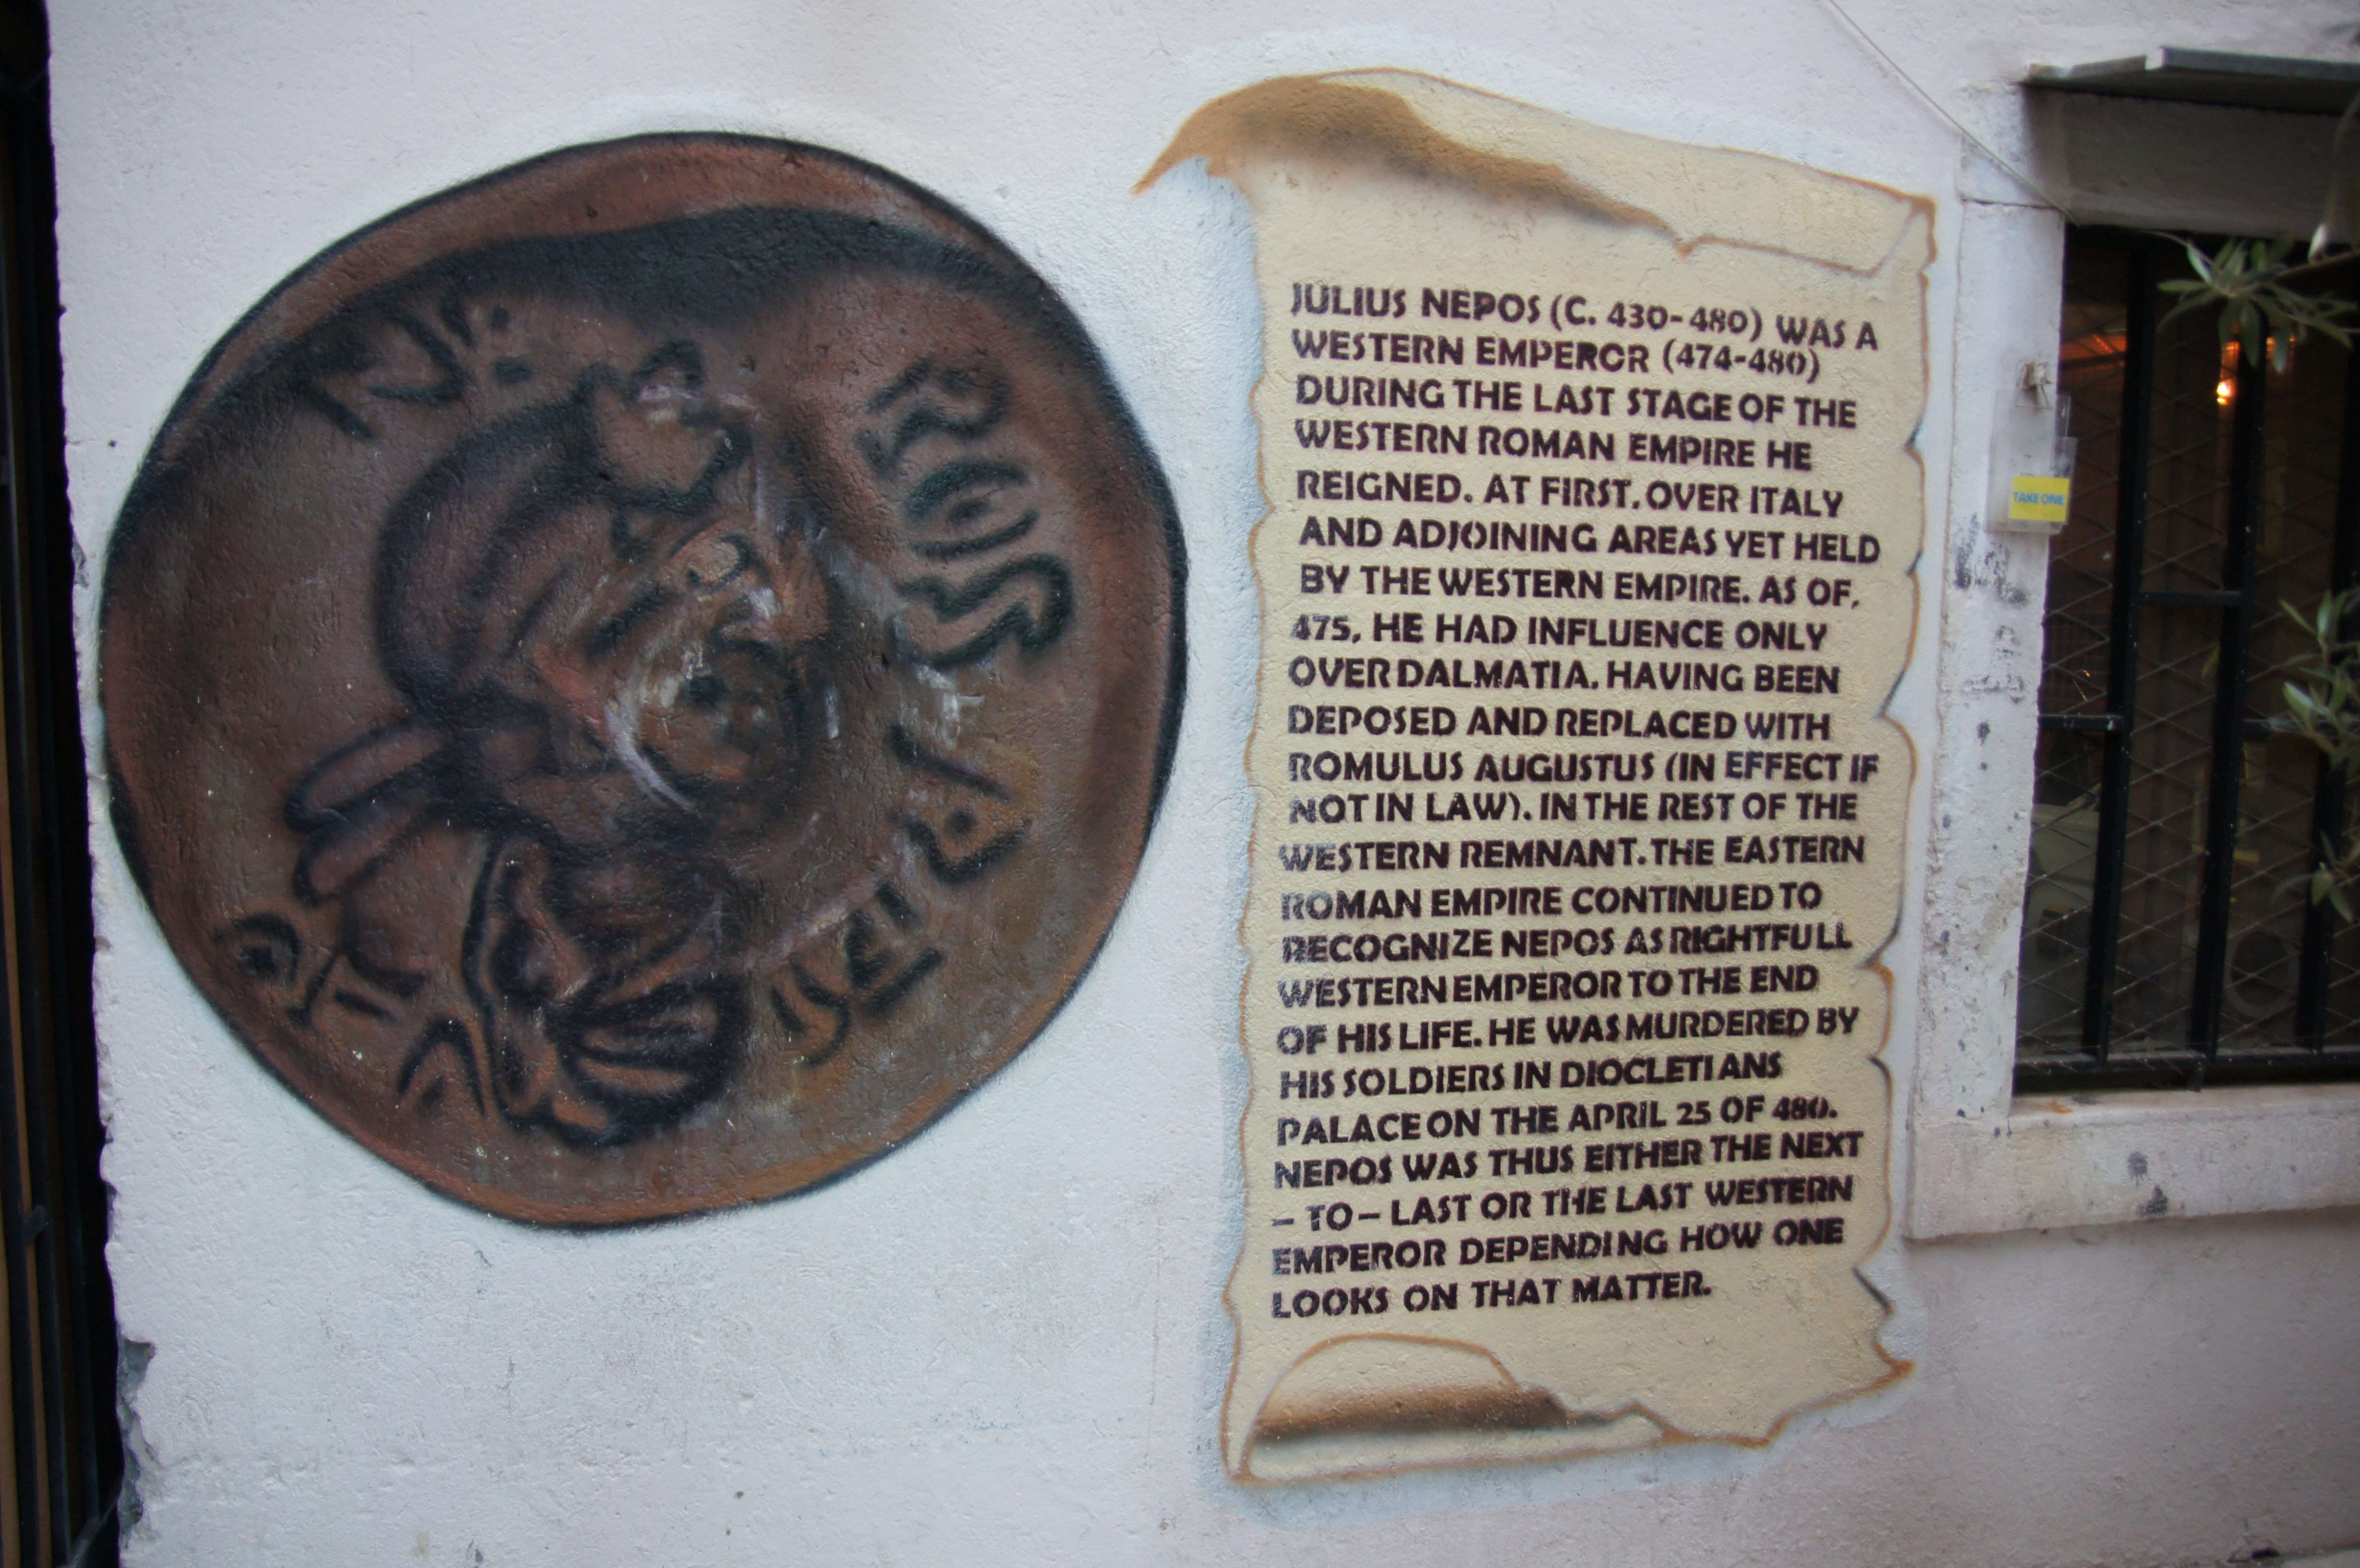 JULIUS NEPOS (C. 430-480) WAS A
WESTERN EMPEROR (474-480)
DURING THE LAST STAGE OF THE
WESTERN ROMAN EMPIRE HE
REIGNED. AT FIRST. OVER ITALY
AND ADJOINING AREAS YET HELD
BY THE WESTERN EMPIRE. AS OF.
475, HE HAD INFLUENCE ONLY
OVER DALMATIA. HAVING BEEN
DEPOSED AND REPLACED WITH
ROMULUS AUGUSTUS (IN EFFECT IF
NOT IN LAW). IN THE REST OF THE
WESTERN REMNANT. THE EASTERN
ROMAN EMPIRE CONTINUED TO
RECOGNIZE NEPOS AS RIGHTFULL
WESTERN EMPEROR TO THE END
OF HIS LIFE. HE WAS MURDERED BY
HIS SOLDIERS IN DIOCLETIANS
PALACE ON THE APRIL 25 OF 480.
NEPOS WAS THUS EITHER THE NEXT
– TO – LAST OR THE LAST WESTERN
EMPEROR DEPENDING HOW ONE
LOOKS ON THAT MATTER.
TAKE ONE